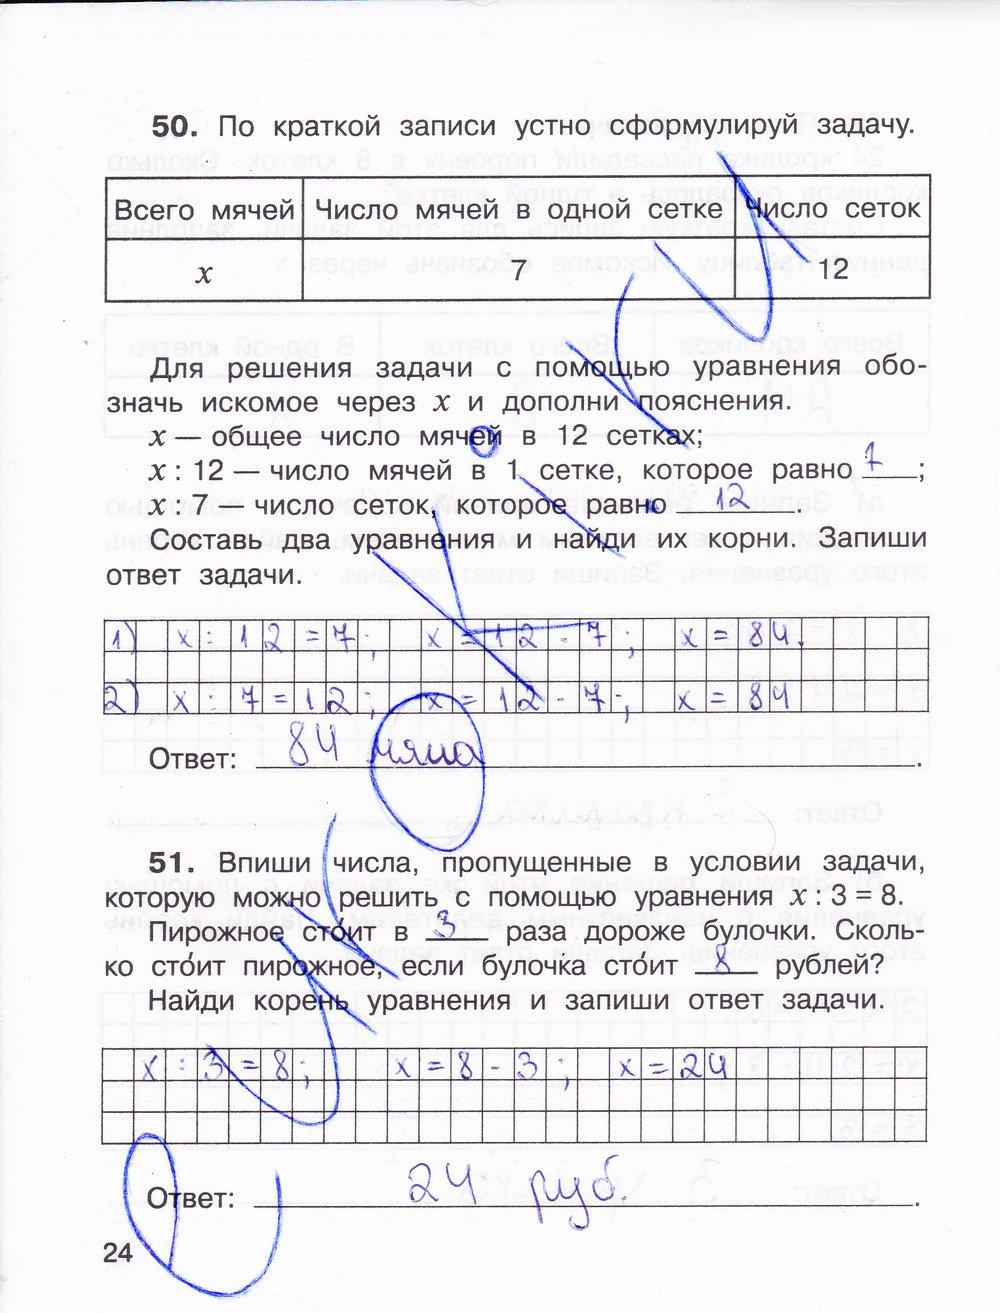 50. По краткой записи устно сформулируй задачу.
Всего мячей Число мячей в одной сетке Число сеток
x 7 12
Для решения задачи с помощью уравнения обо-
значь искомое через x и дополни пояснения.
x — общее число мячей в 12 сетках;
x : 12 — число мячей в 1 сетке, которое равно 7 ;
x : 7 — число сеток, которое равно 12 .
Составь два уравнения и найди их корни. Запиши
ответ задачи.
1) x : 12 = 7; x = 12 · 7; x = 84.
2) x : 7 = 12; x = 12 · 7; x = 84
Ответ: 84 мяча .
51. Впиши числа, пропущенные в условии задачи,
которую можно решить с помощью уравнения x : 3 = 8.
Пирожное сто́ит в 3 раза дороже булочки. Сколь-
ко сто́ит пирожное, если булочка сто́ит 8 рублей?
Найди корень уравнения и запиши ответ задачи.
x : 3 = 8; x = 8 · 3; x = 24
Ответ: 24 руб. .
24